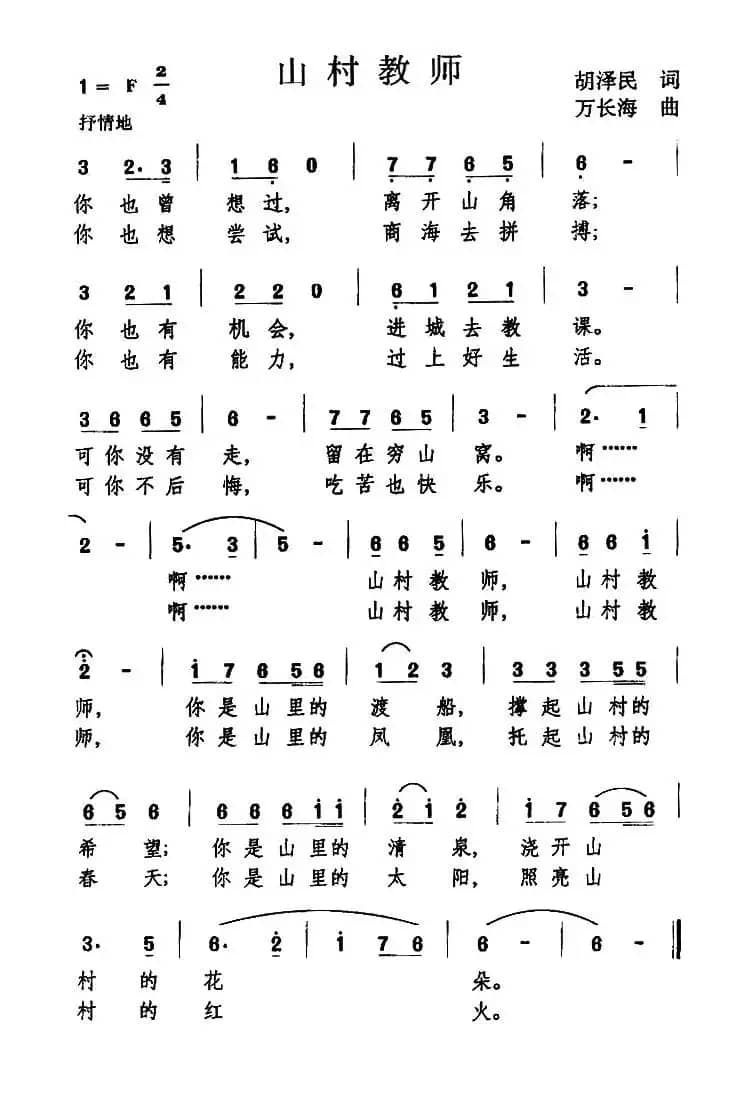 山村教师
1= F 2/4
胡泽民 词
万长海 曲
抒情地
3 2. 3 | 1 6 0 | 7 7 6 5 | 6 - |
你也曾 想过, 离开山角 落;
你也想 尝试, 商海去拼 搏;
3 2 1 | 2 2 0 | 6 1 2 1 | 3 - |
你也有 机会, 进城去教 课。
你也有 能力, 过上好生 活。
3 6 6 5 | 6 - | 7 7 6 5 | 3 - | 2. 1 |
可你没有 走, 留在穷山 窝。 啊……
可你不后 悔, 吃苦也快 乐。 啊……
2 - | 5. 3 | 5 - | 6 6 5 | 6 - | 6 6 i |
啊…… 山村教 师, 山村教
啊…… 山村教 师, 山村教
2 - | i 7 6 5 6 | i 2 3 | 3 3 3 5 5 |
师, 你是山里的 渡船, 撑起山村的
师, 你是山里的 凤凰, 托起山村的
6 5 6 | 6 6 6 i i | 2 i 2 | i 7 6 5 6 |
希望; 你是山里的 清泉, 浇开山
春天; 你是山里的 太阳, 照亮山
3. 5 | 6. 2 | i 7 6 | 6 - | 6 - ‖
村的花 朵。
村的红 火。